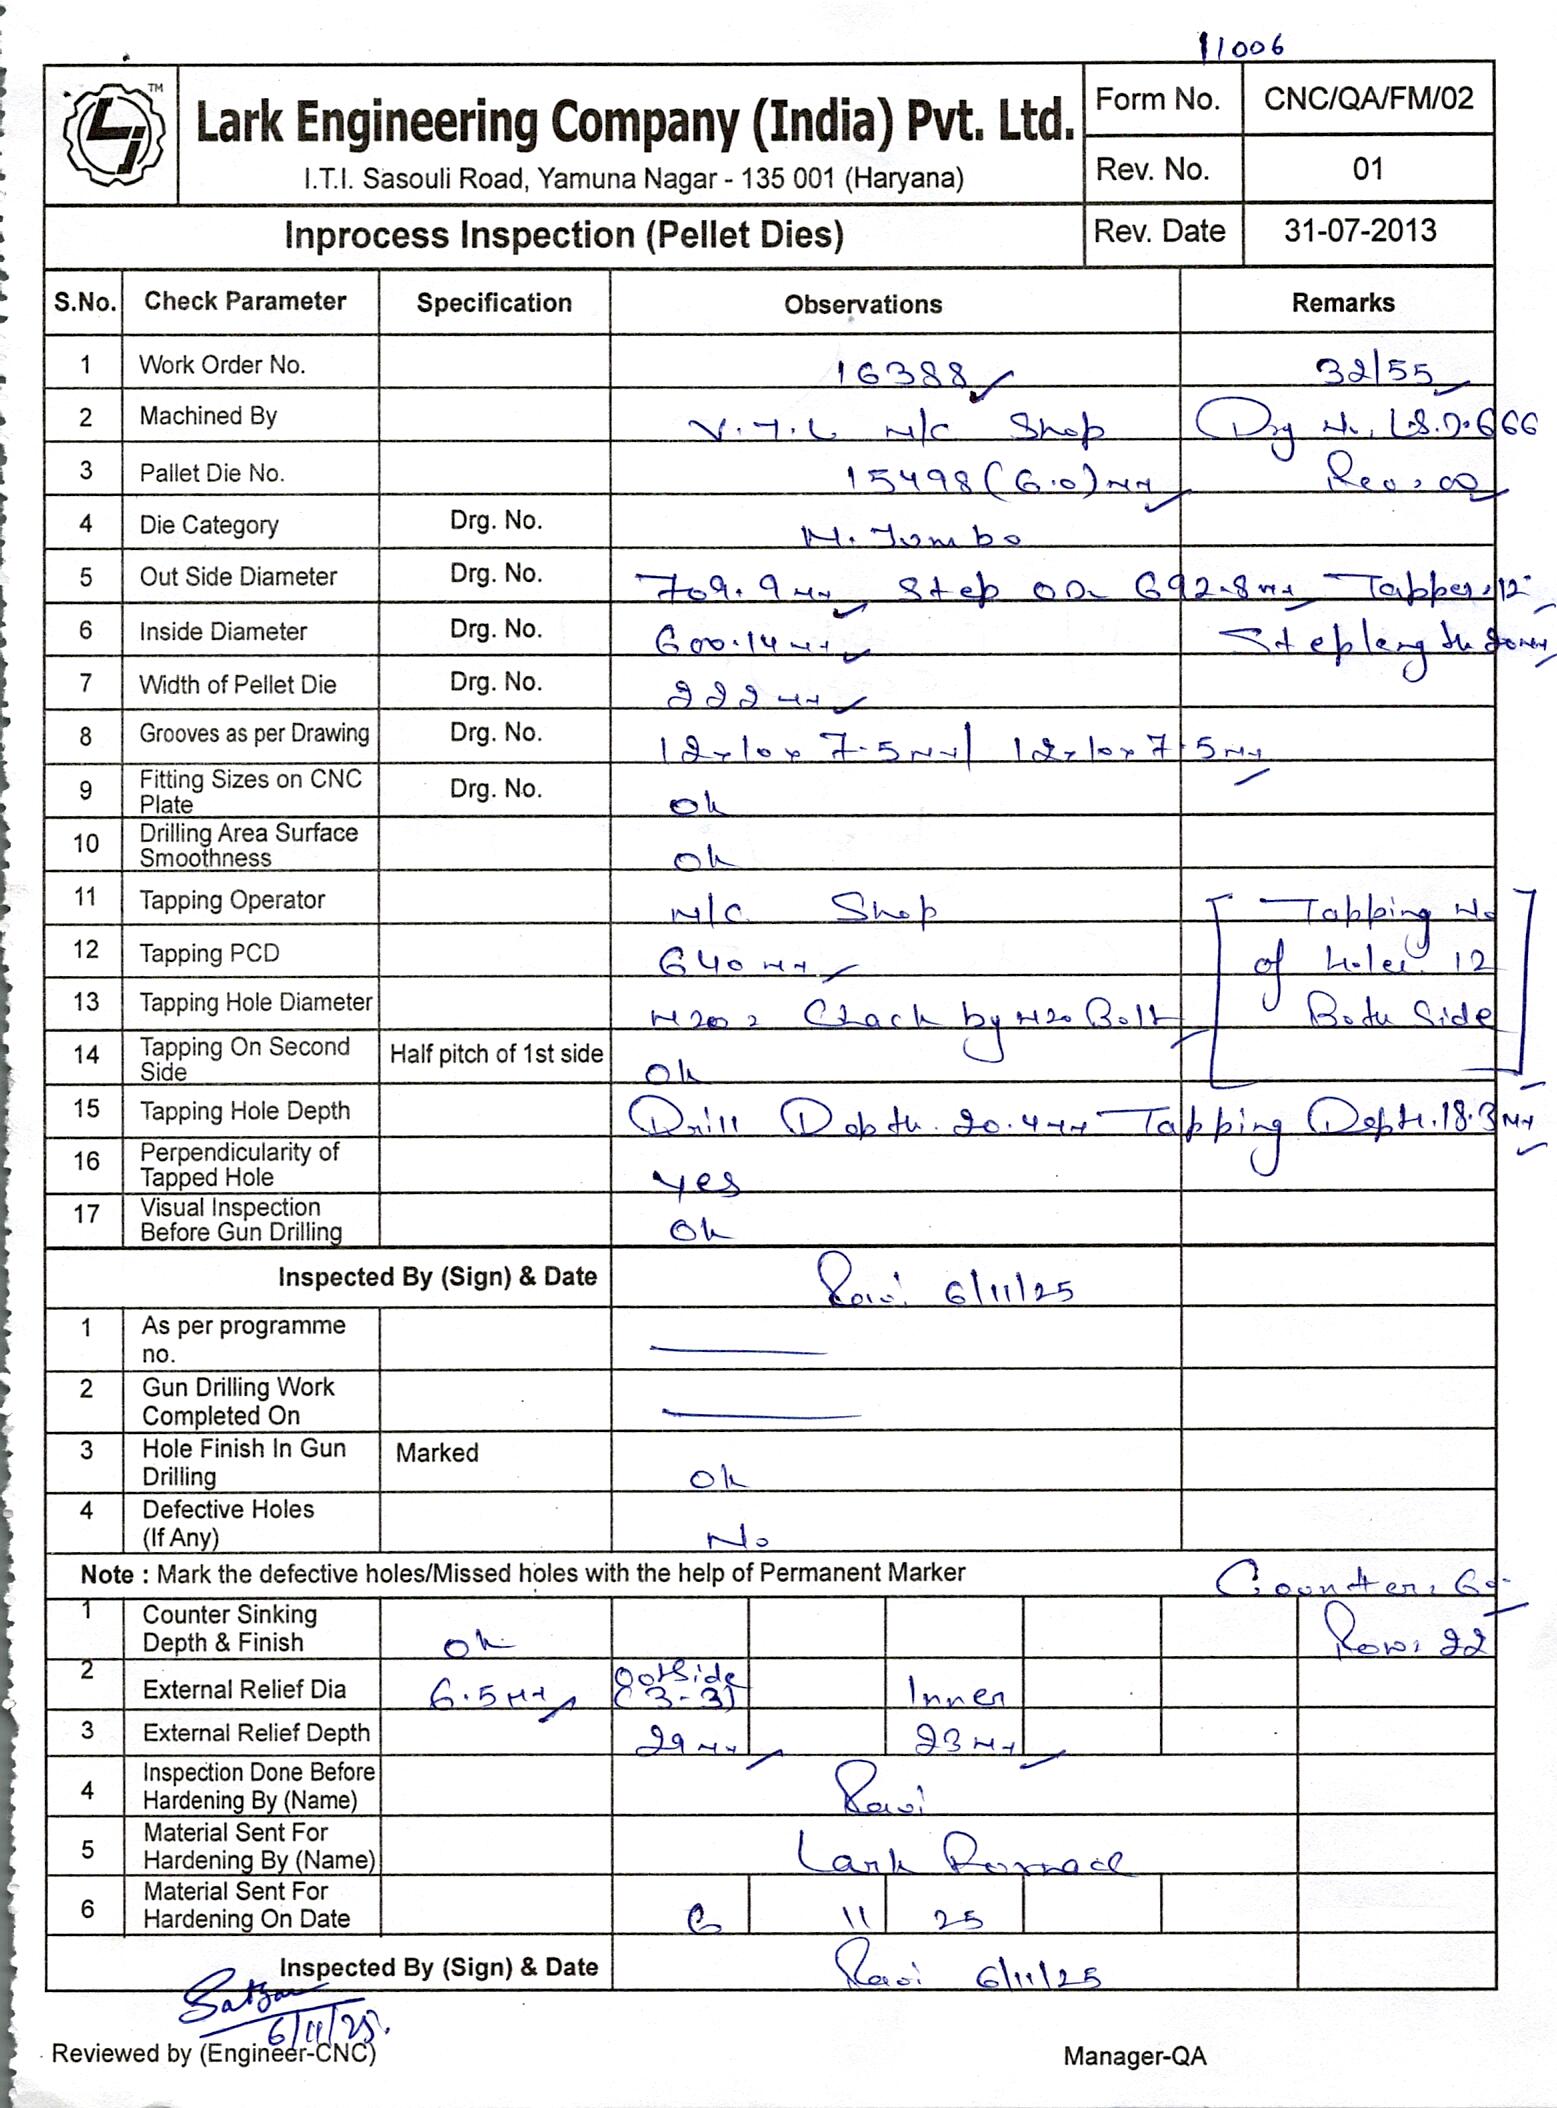 11006
TM
Lark Engineering Company (India) Pvt. Ltd.
I.T.I. Sasouli Road, Yamuna Nagar - 135 001 (Haryana)
Form No. CNC/QA/FM/02
Rev. No. 01
Inprocess Inspection (Pellet Dies) Rev. Date 31-07-2013
S.No. Check Parameter Specification Observations Remarks
1 Work Order No. 16388 32/55
2 Machined By V.T.L M/C Shop Drg No. L.S.D.666
3 Pallet Die No. 15498 (6.0) MM Rev: 00
4 Die Category Drg. No. M. Jumbo
5 Out Side Diameter Drg. No. 709.9 MM Step OD- 692.8 MM Tapper: 12°
6 Inside Diameter Drg. No. 600.14 MM Step length 20 MM
7 Width of Pellet Die Drg. No. 222 MM
8 Grooves as per Drawing Drg. No. 12x10x7.5 MM/ 12x10x7.5 MM
9 Fitting Sizes on CNC Plate Drg. No. Ok
10 Drilling Area Surface Smoothness Ok
11 Tapping Operator M/C Shop Tapping No
12 Tapping PCD 640 MM of Holes 12
13 Tapping Hole Diameter M20 : Chack by M20 Bolt Both Side
14 Tapping On Second Side Half pitch of 1st side Ok
15 Tapping Hole Depth Drill Depth. 20.4 MM Tapping Depth. 18.3 MM
16 Perpendicularity of Tapped Hole Yes
17 Visual Inspection Before Gun Drilling Ok
Inspected By (Sign) & Date Ravi 6/11/25
1 As per programme no.
2 Gun Drilling Work Completed On
3 Hole Finish In Gun Drilling Marked Ok
4 Defective Holes (If Any) No
Note : Mark the defective holes/Missed holes with the help of Permanent Marker Counter: 60°
1 Counter Sinking Depth & Finish Ok Row: 22
2 External Relief Dia 6.5 MM Outside (3-3) Inner
3 External Relief Depth 29 MM 23 MM
4 Inspection Done Before Hardening By (Name) Ravi
5 Material Sent For Hardening By (Name) Lark
6 Material Sent For Hardening On Date 6 11 25
Inspected By (Sign) & Date Ravi 6/11/25
6/11/25.
Reviewed by (Engineer-CNC) Manager-QA